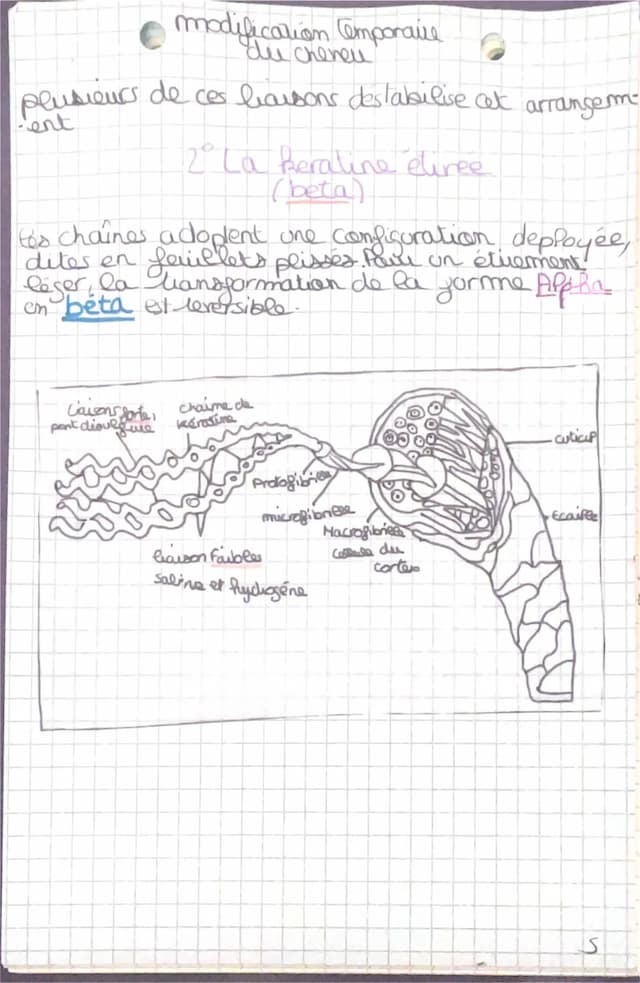 modification Temporaire
du cheveu
plusieurs de ces liaisons destabilise cet arrangem-
-ent
2° La keratine étirée
(beta)
Les chaînes adoptent une configuration deployée,
dites en feuillets plissés Pour un étirement
léger, la transformation de la forme Alpha
en béta est reversible.
Liaisons forte,
pont disulfure
chaine de
kératine
cuticul
Protofibrille
microfibrille
Ecailles
Macrofibrille
du
cortex
liaison Faibles
saline et hydrogéne
5